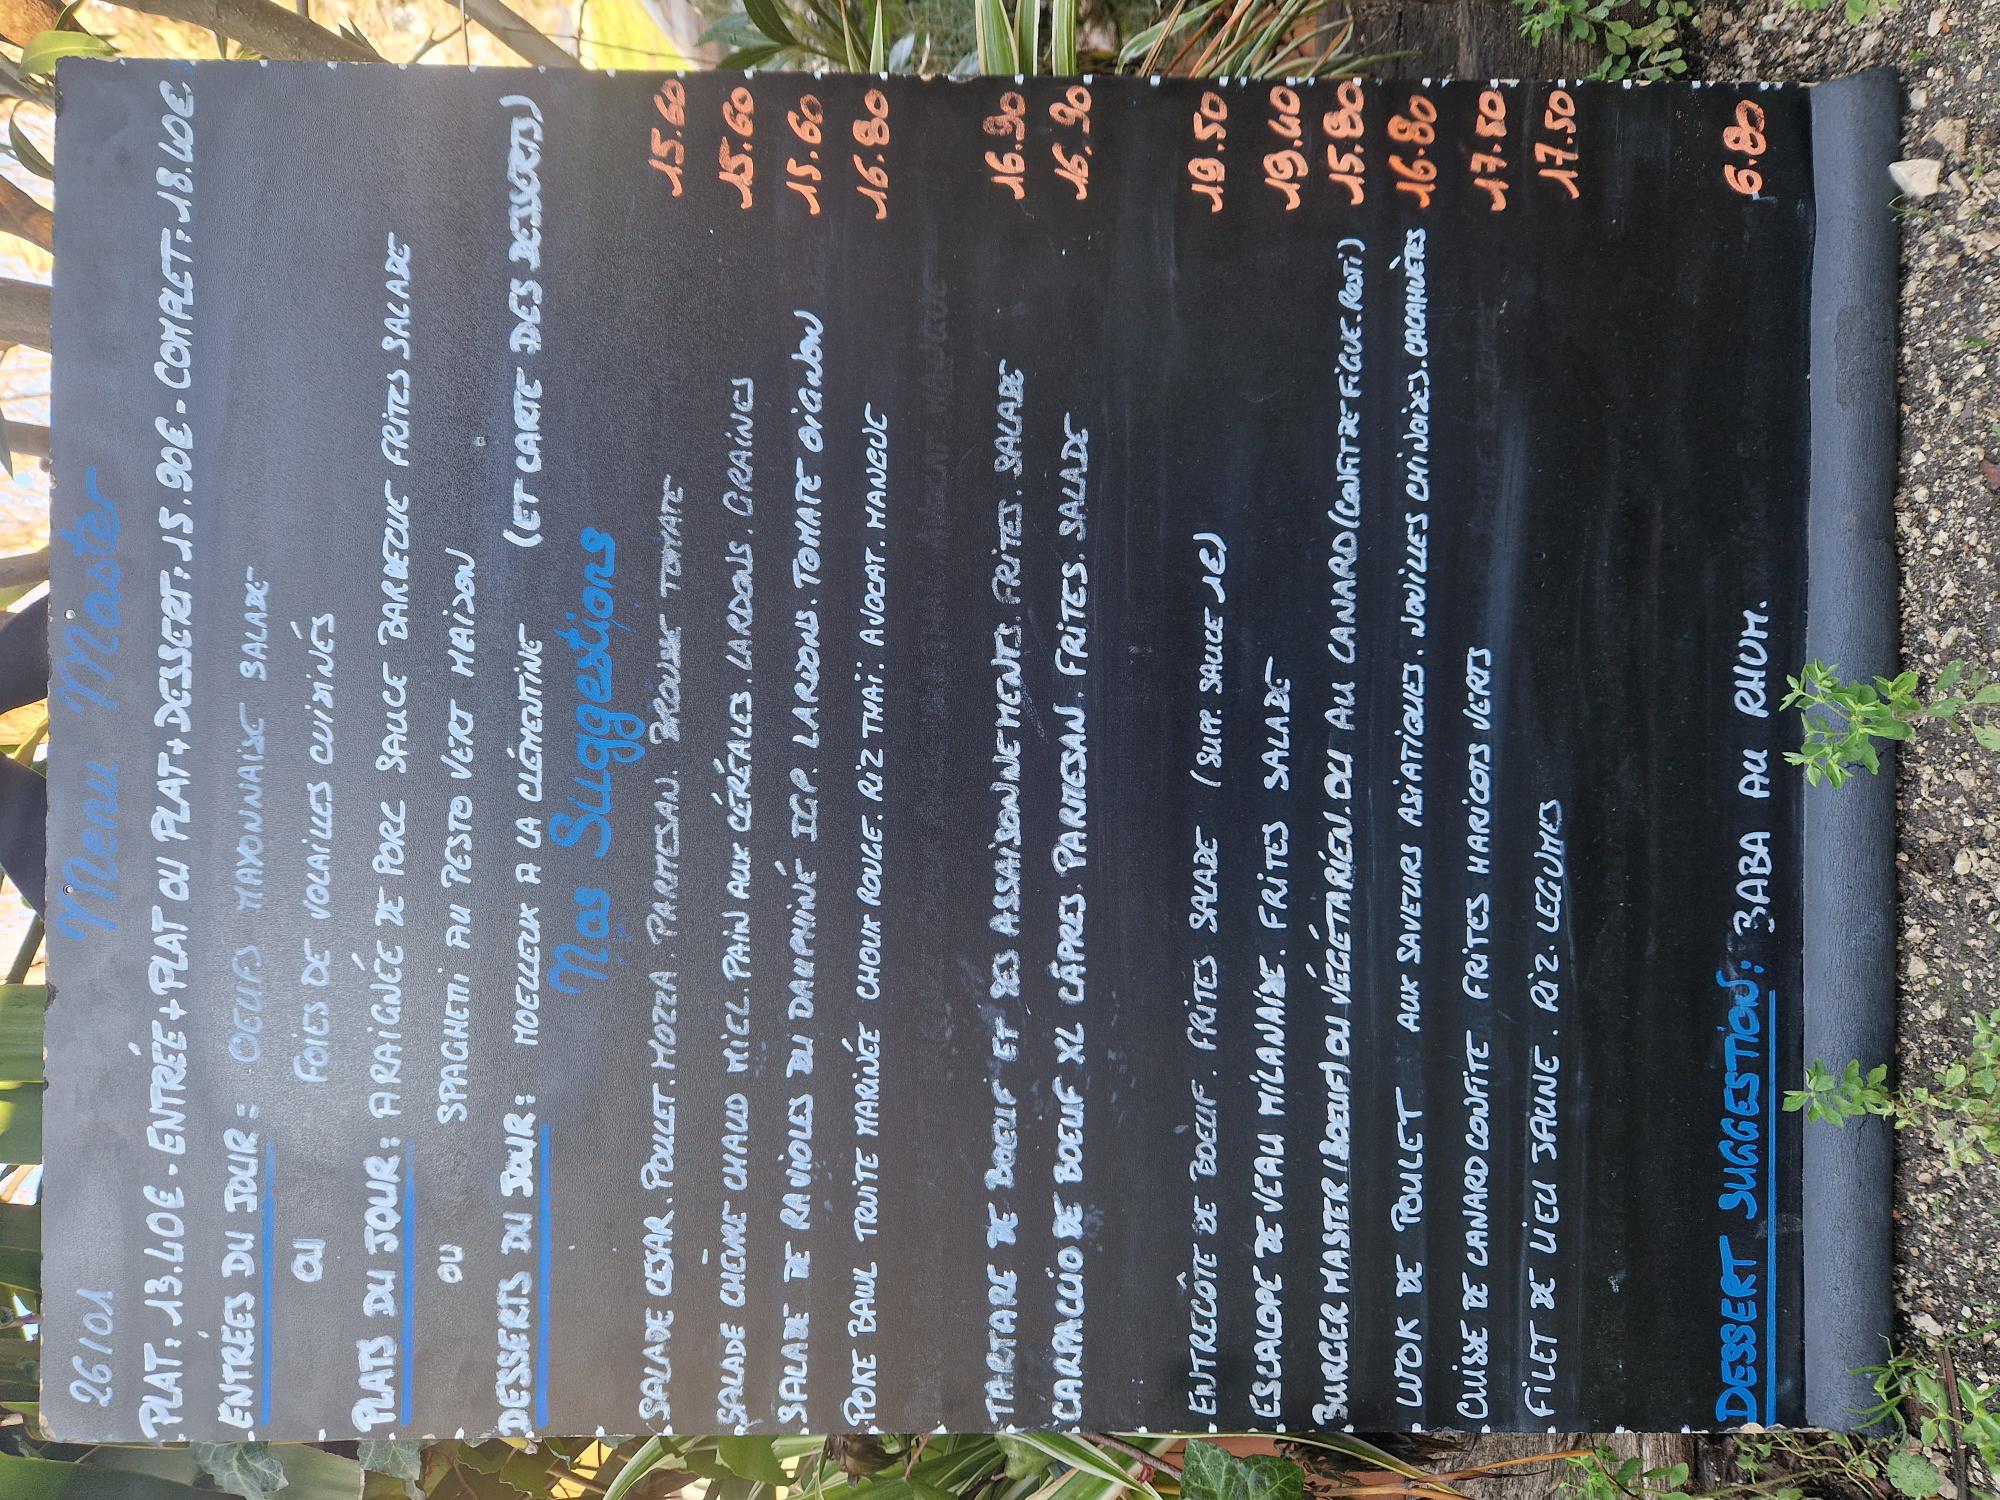 26/01 Menu Master
PLAT: 13.40E - ENTRÉE + PLAT OU PLAT + DESSERT: 15.90E - COMPLET: 18.40E
ENTRÉES DU JOUR: OEUFS MAYONNAISE SALADE
OU FOIES DE VOLAILLES CUISINÉS
PLATS DU JOUR: ARAIGNÉE DE PORC SAUCE BARBECUE FRITES SALADE
OU SPAGHETI AU PESTO VERT MAISON
DESSERTS DU JOUR: MOELLEUX A LA CLÉMENTINE (ET CARTE DES DESSERTS)
Nos Suggestions
SALADE CESAR. POULET. MOZZA. PARMESAN. BROUSSE TOMATE 15.60
SALADE CHÈVRE CHAUD MIEL. PAIN AUX CÉRÉALES. LARDONS. GRAINES 15.60
SALADE DE RAVIOLES DU DAUPHINÉ IGP. LARDONS. TOMATE OIGNON 15.60
POKE BAWL TRUITE MARINÉE CHOUX ROUGE. RIZ THAI. AVOCAT. MANGUE 16.80
TARTARE DE BOEUF ET SES ASSAISONNEMENTS. FRITES. SALADE 16.90
CARPACCIO DE BOEUF XL CÂPRES. PARMESAN. FRITES. SALADE 16.90
ENTRECÔTE DE BOEUF. FRITES SALADE (SUPP. SAUCE 1E) 19.50
ESCALOPE DE VEAU MILANAISE. FRITES SALADE 19.40
BURGER MASTER (BOEUF) OU VÉGÉTARIEN. OU AU CANARD (CONFIT DE FIGUE. ROSTI) 15.80
WOK DE POULET AUX SAVEURS ASIATIQUES. NOUILLES CHINOISES. CACAHUÈTES 16.80
CUISSE DE CANARD CONFITE FRITES HARICOTS VERTS 17.50
FILET DE LIEU JAUNE. RIZ. LEGUMES 17.50
DESSERT SUGGESTION: BABA AU RHUM. 6.80